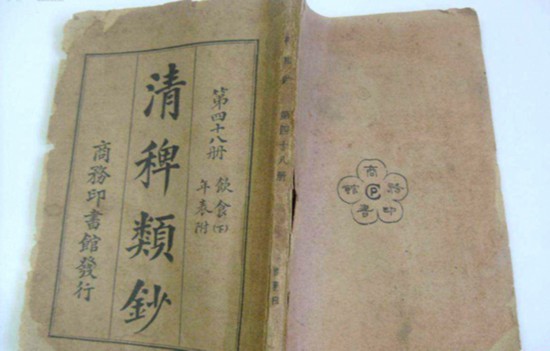 第四十八册 飲食(下)
年表附
清稗類鈔
商務印書館發行
第四十八册
商務印書館